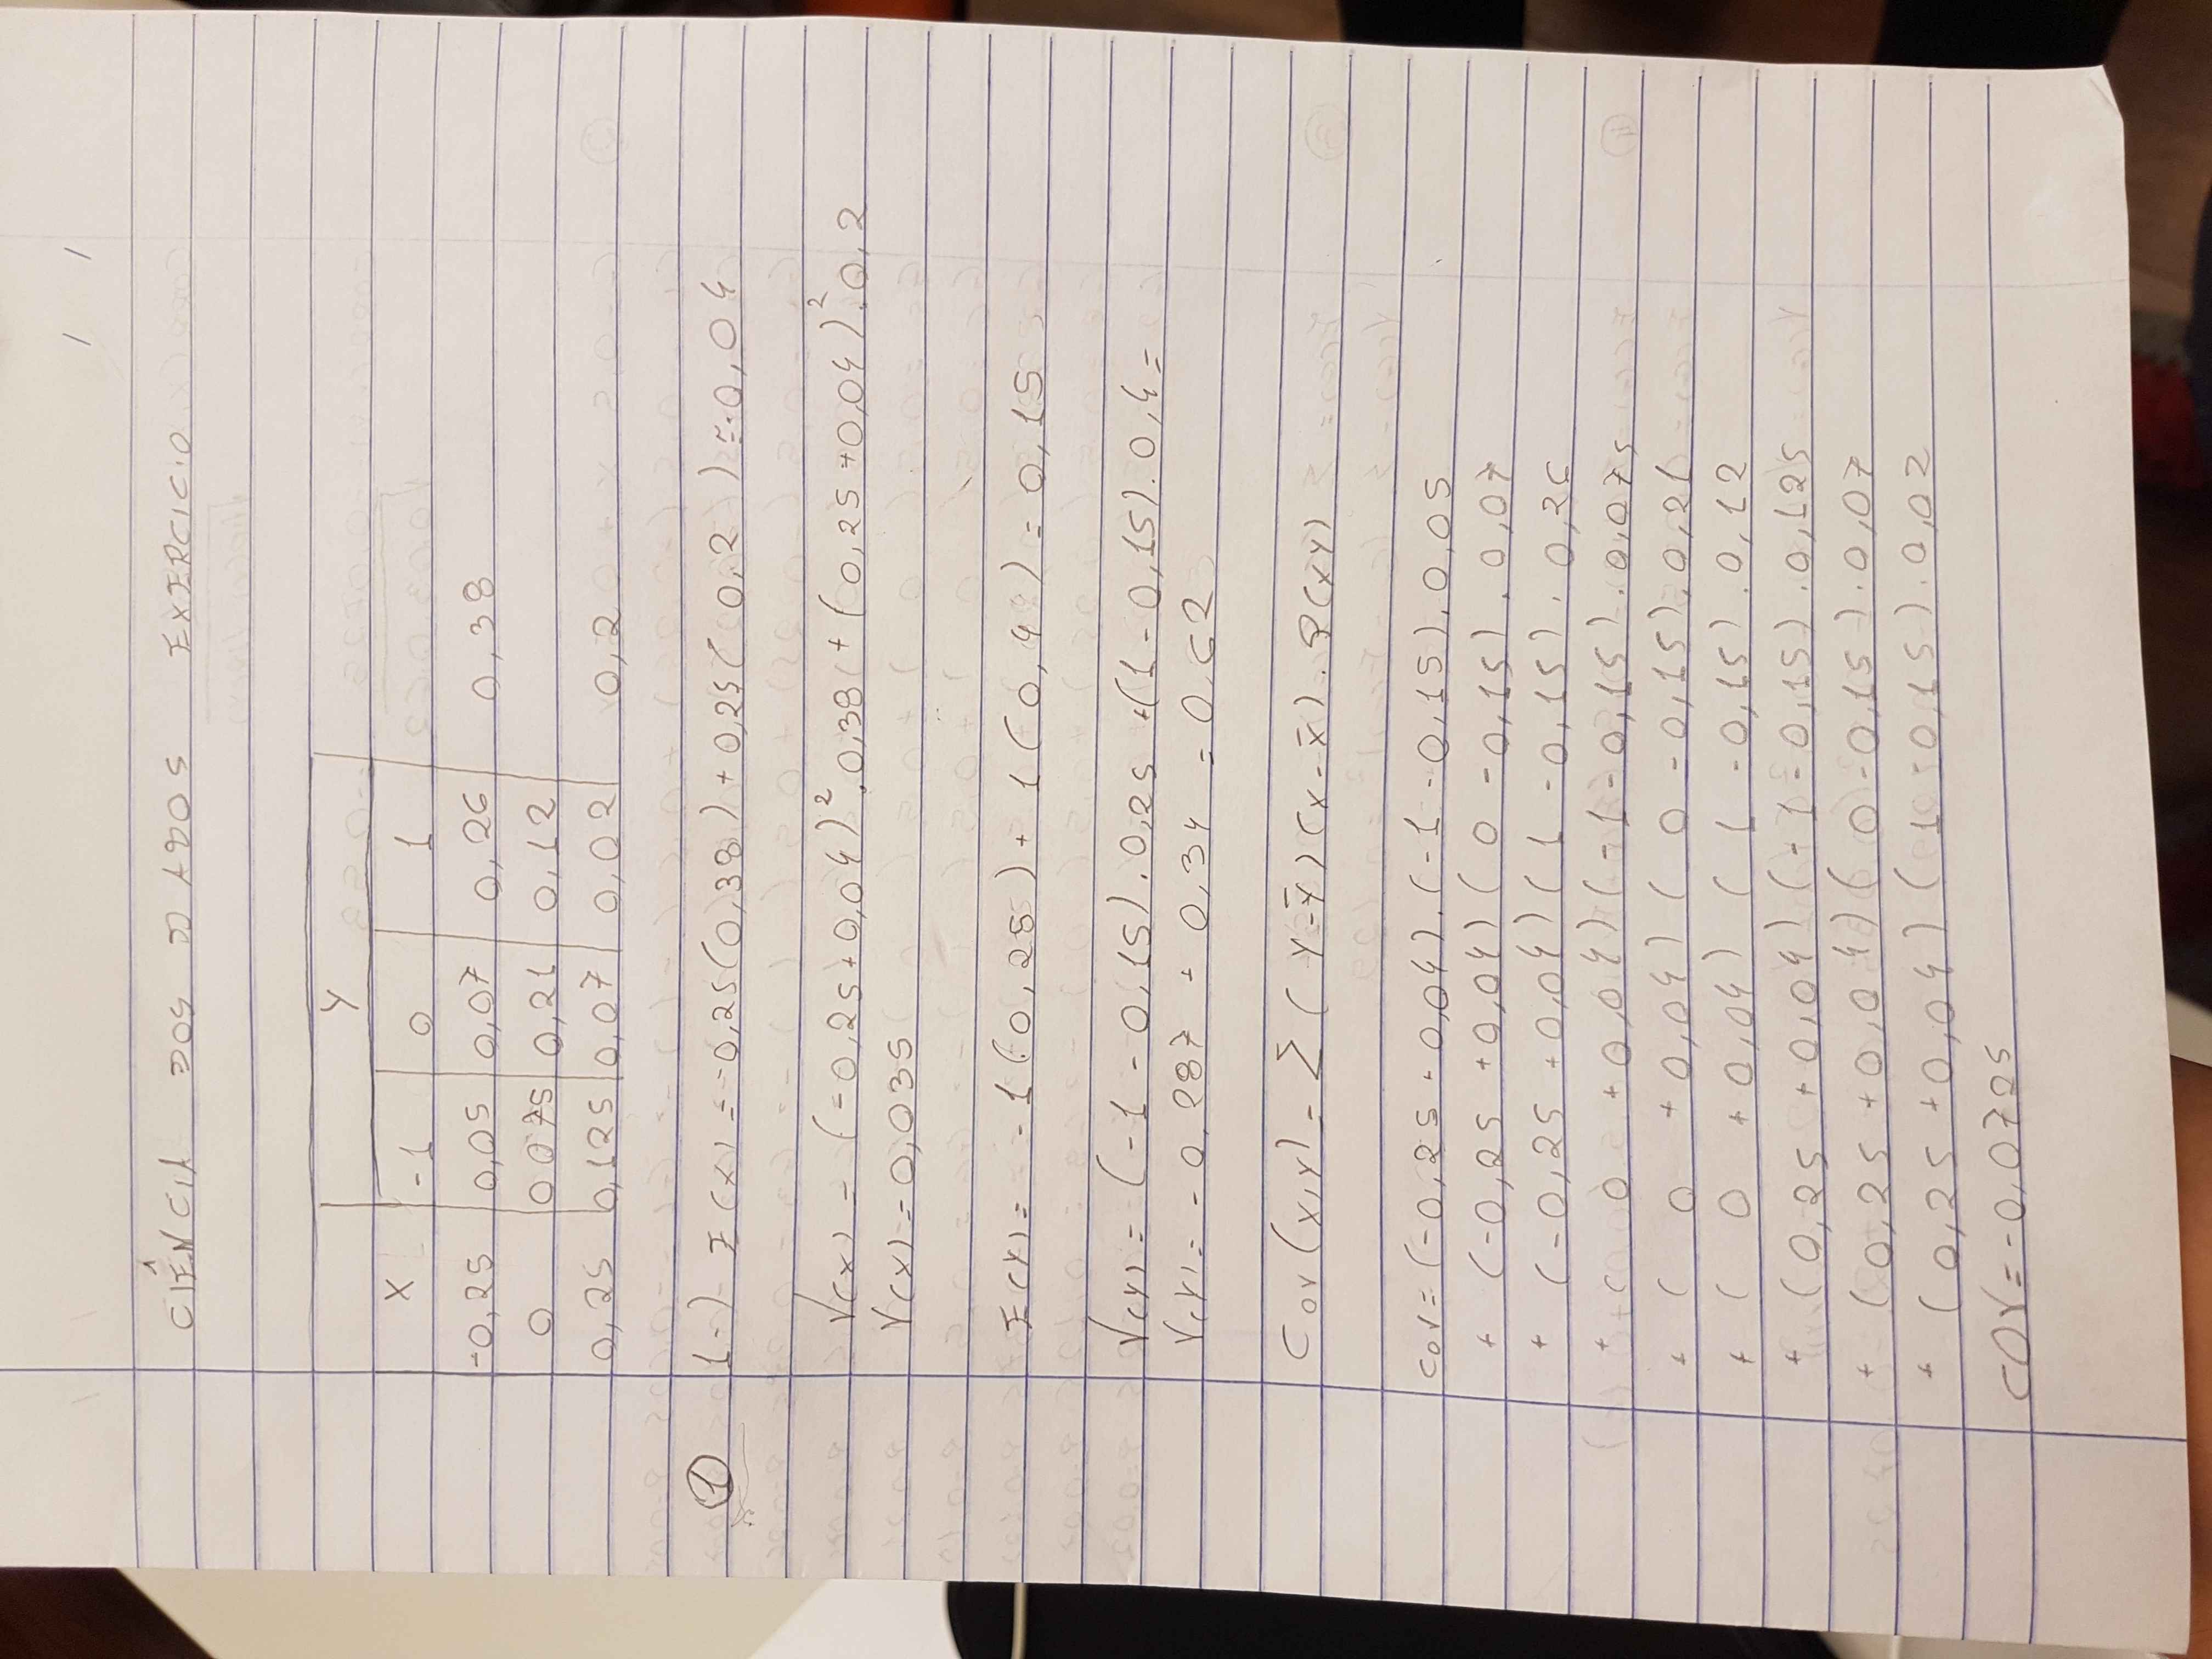 / /
CIÊNCIA DOS DADOS EXERCICIO
Y
X -1 0 1
-0,25 0,05 0,07 0,26 0,38
0 0 075 0,21 0,12
0,25 0,125 0,07 0,02 0,2
1 1-) E(X) = -0,25(0,38) + 0,25( 0,2 ) ≅ -0,04
V(X) = (-0,25+0,04)².0,38 + (0,25+0,04)².0,2
V(X) = 0,035
E(Y) = -1(0,25) + 1(0,4) = 0,15
V(Y) = (-1 - 0,15).0,25 +(1 - 0,15).0,4 =
V(Y) = -0,287 + 0,34 = 0,62
Cov(X,Y) = Σ(Y-Ȳ)(X-X̄).P(XY)
COV= (-0,25 + 0,04).(-1 -0,15).0,05
+ (-0,25 +0,04)( 0 -0,15).0,07
+ (-0,25 +0,04)(1 -0,15).0,26
+ ( 0 +0,04)(-1-0,15).0,075
+ ( 0 +0,04)( 0 -0,15).0,21
+ ( 0 +0,04) (1 -0,15).0,12
+ (0,25 +0,04)(-1-0,15).0,125
+ (0,25+0,04)(0-0,15).0,07
+ (0,25+0,04)(1-0,15).0,02
COV=-0,0725